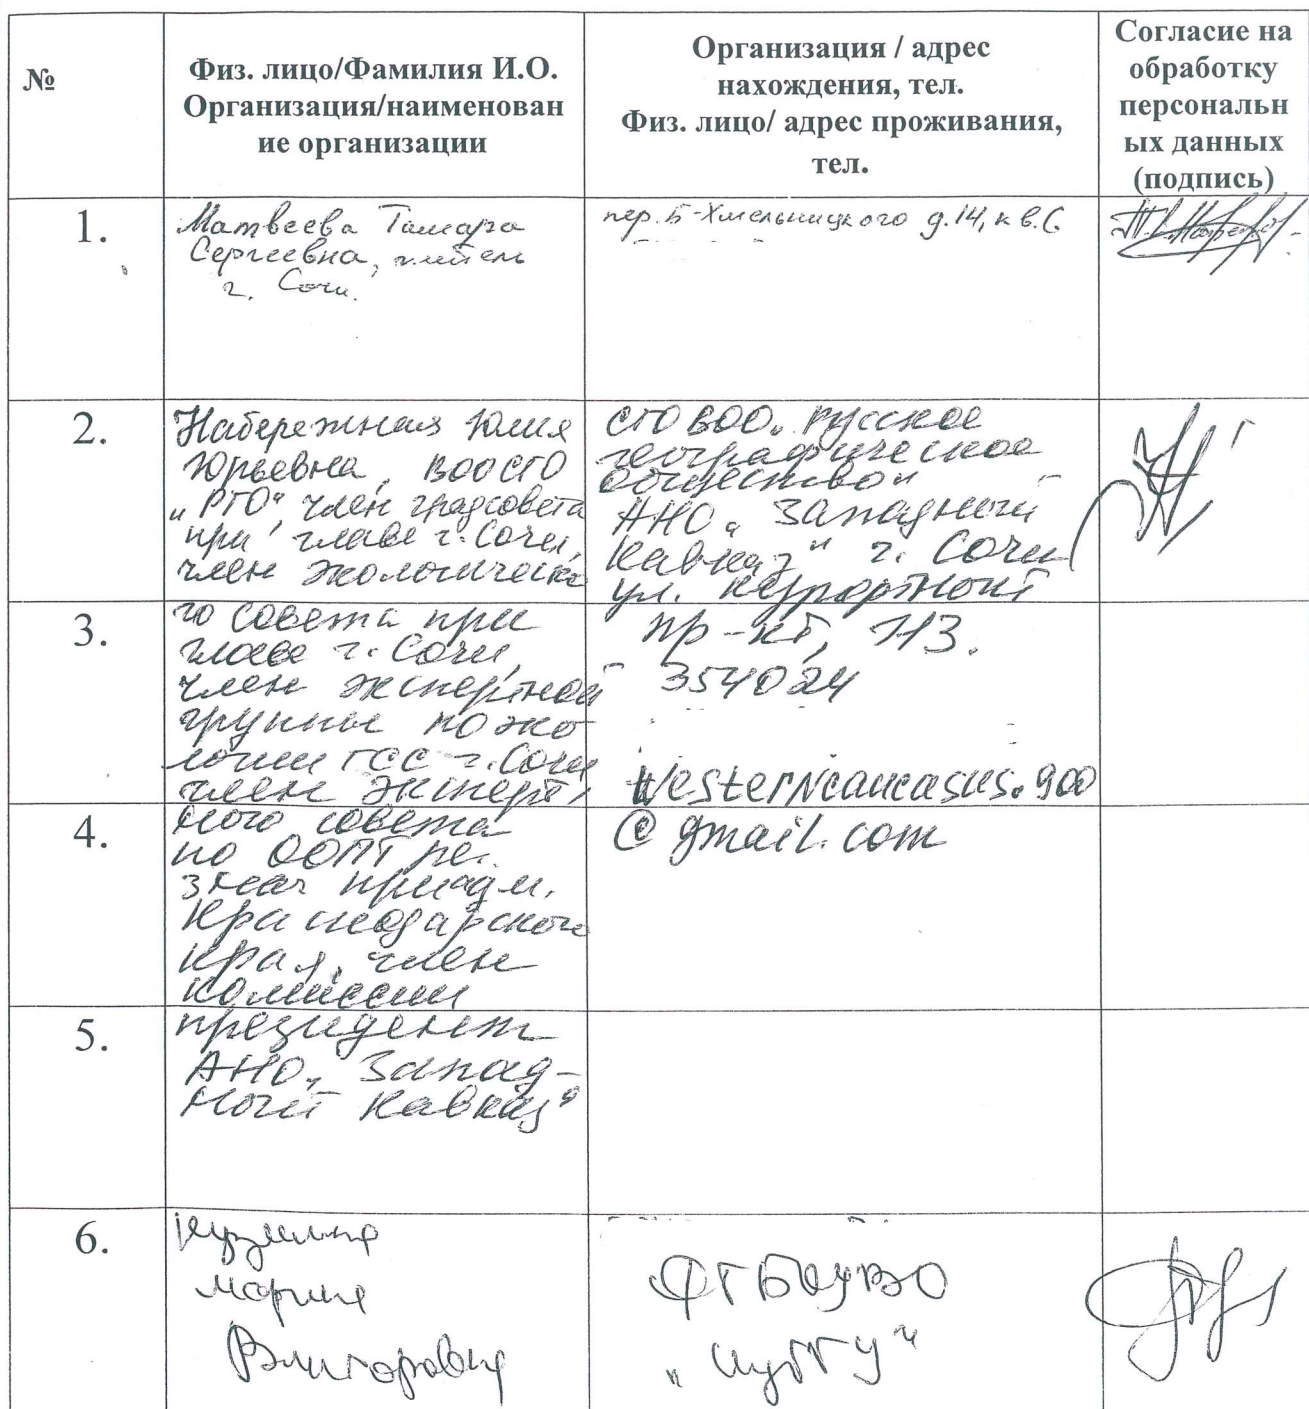 №
Физ. лицо/Фамилия И.О.
Организация/наименован
ие организации
Организация / адрес
нахождения, тел.
Физ. лицо/ адрес проживания,
тел.
Согласие на
обработку
персональн
ых данных
(подпись)
1.
Матвеева Тамара
Сергеевна, житель
г. Сочи.
пер. Б-Хмельницкого д.14, кв.6
2.
Набережная Юлия
Юрьевна, ВОО СГО
„РГО“ член градсовета
при главе г. Сочи,
член экологическо
СГО ВОО „Русское
географическое
общество“
АНО „Западный
Кавказ“ г. Сочи
ул. Курортный
3.
го совета при
главе г. Сочи,
член экспертной
группы по эко
логии ГСС г. Сочи
член эксперт
пр-кт, 113.
354024
Westerncaucasus.900
4.
ного совета
по ООПТ рег.
знач при адм.
Краснодарского
края, член
комиссии
@ gmail.com
5.
президент
АНО „Запад-
ный Кавказ“
6.
Кузмина
Мария
ФГБОУ ВО